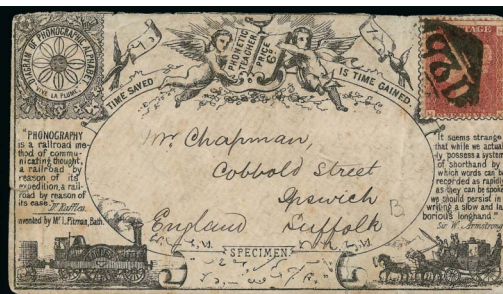 DIAGRAM OF PHONOGRAPHIC ALPHABET
"VIVE LA PLUME"
TIME SAVED
PHONETIC
TEACHER
PRICE
IS TIME GAINED.
"PHONOGRAPHY
is a railroad me-
thod of commu-
nicating thought,
a railroad by
reason of its
expedition, a rail-
road by reason of
its ease."
Invented by Mr I. Pitman, Bath.
Mr Chapman,
Cobbold Street
Ipswich
England Suffolk
B
SPECIMEN
"It seems strange
that while we actual-
ly possess a system
of shorthand by
which words can be
recorded as rapidly
as they can be spoken
we should persist in
writing a slow and la-
borious longhand."
Sir W. Armstrong